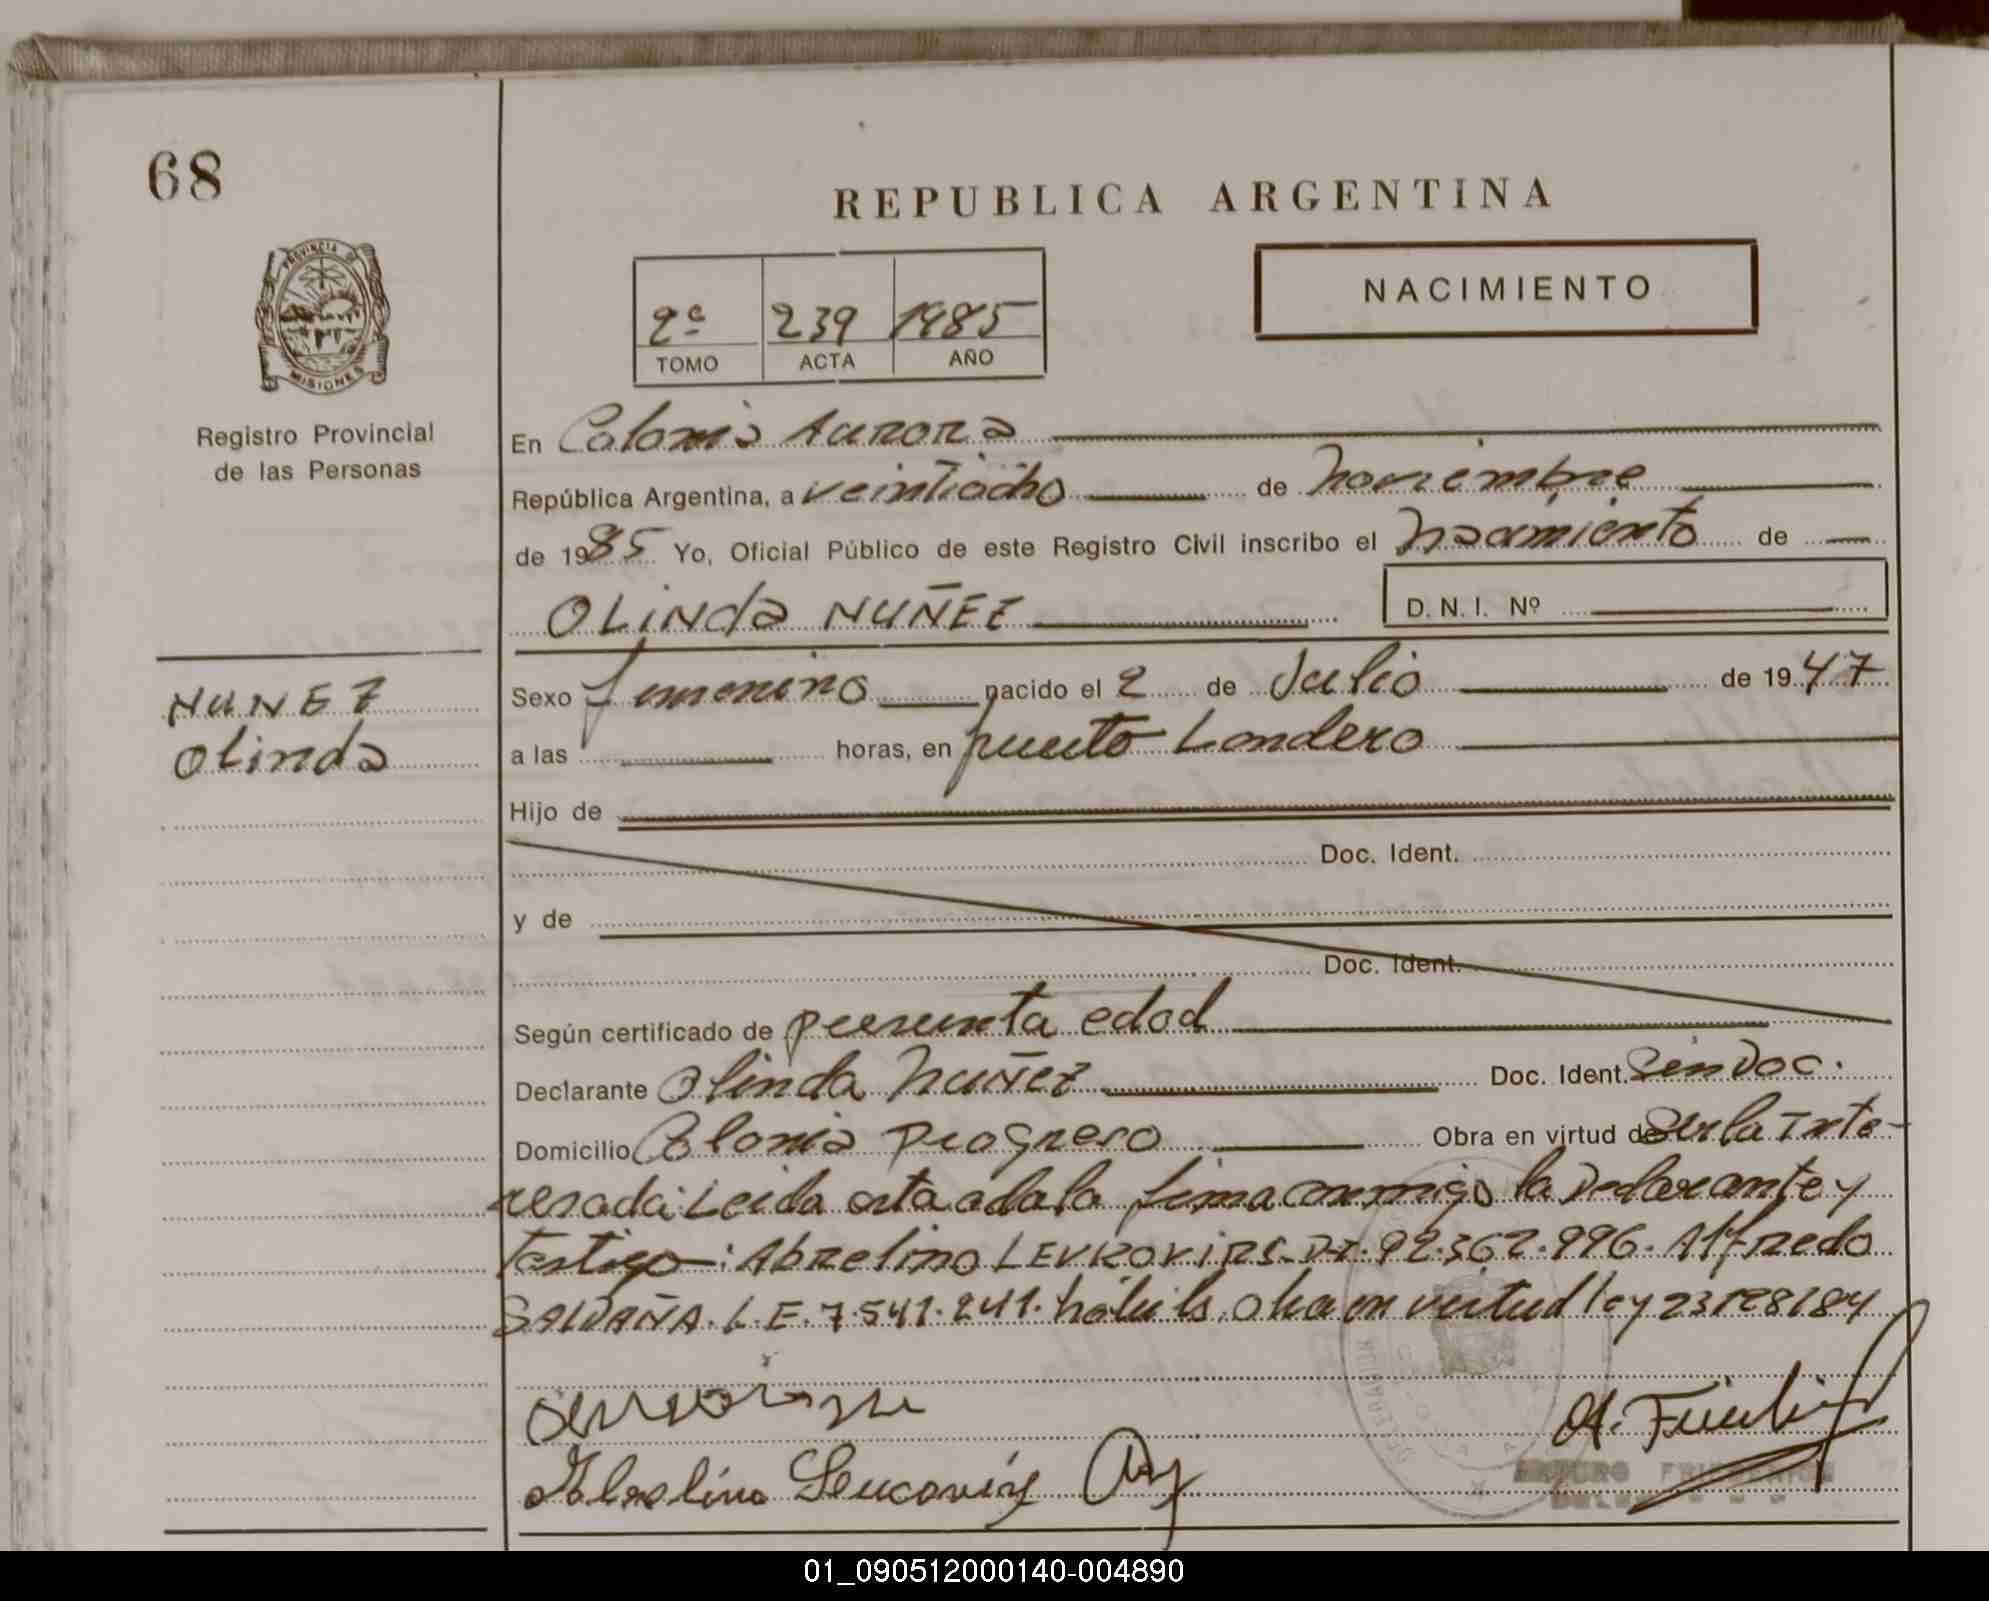 68
REPUBLICA ARGENTINA
PROVINCIA DE
MISIONES
NACIMIENTO
2º 239 1985
TOMO ACTA AÑO
Registro Provincial
de las Personas
En Colonia Aurora
República Argentina, a veintiocho de noviembre
de 1985 Yo, Oficial Público de este Registro Civil inscribo el nacimiento de
OLINda NUÑEZ D. N. I. Nº
NUNEZ
Olinda
Sexo femenino nacido el 2 de Julio de 1947
a las horas, en puerto Londero
Hijo de
Doc. Ident.
y de
Doc. Ident.
Según certificado de presunta edad
Declarante Olinda Nuñez Doc. Ident. Sin Doc.
Domicilio Colonia Progreso Obra en virtud de ser la Inte-
resada: Leida esta acta la firma conmigo la Declarante y
Testigo: Abrelino LEVKOVIRS. D.I. 92.362.996. Alfredo
SALDAÑA. L.E. 7.541.241. habils obra en virtud ley 23128/84
A.
ARTURO
01_090512000140-004890